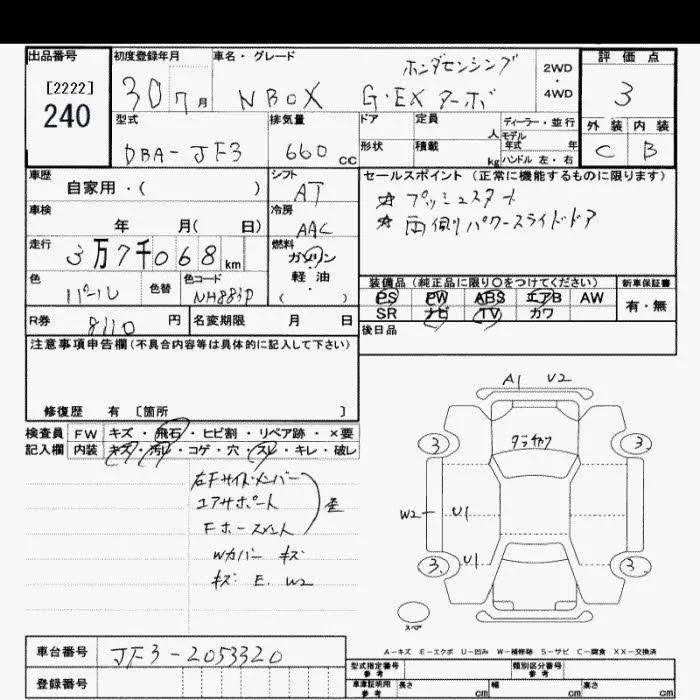 出品番号 初度登録年月 車名・グレード 評価点
[2222]
240
30 7月 NBOX G・EX ターボ ホンダセンシング 2WD・4WD 3
型式 排気量 ドア 定員 人 ディーラー・並行 外装 内装
DBA-JF3 660cc 形状 積載 kg モデル年式 年 ハンドル 左・右 C B
車歴 自家用・( ) シフト AT
セールスポイント(正常に機能するものに限ります)
☆プッシュスタート
☆両側パワースライドドア
車検 年 月( 日) 冷房 AAC
走行 3万7千068km 燃料 ガソリン・軽油・( )
色 パール 色替 色コード NH883P
装備品(純正品に限り○をつけてください) 新車保証書
PS PW ABS エアB AW 有・無
SR ナビ TV カワ
R券 8110円 名変期限 月 日
後日品
注意事項申告欄(不具合内容等は具体的に記入して下さい)
修復歴 有 〔箇所 〕
検査員 FW キズ・飛石・ヒビ割・リペア跡・×要
記入欄 内装 キズ・汚レ・コゲ・穴・スレ・キレ・破レ
右Fサイドメンバー
コアサポート 歪
Wカバー キズ
キズ E. W2
A1 U2
3 3
W2 U1
U1
3 3
スペア
A-キズ E-エクボ U-凹み W-補修跡 S-サビ C-腐食 XX-交換済
車台番号 JF3-2053320
登録番号
型式指定番号 参考 類別区分番号 参考
車庫証明用 参考 長さ cm 幅 cm 高さ cm